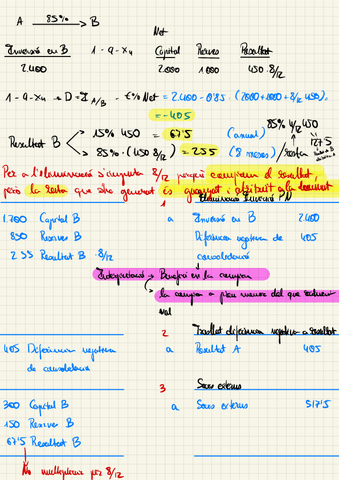 A 85% B
Net
Inversió en B 1-9-X4 Capital Reserves Resultat
2.400 2.000 1.000 450 · 8/12
1-9-X4 → D = I A/B - €% Net = 2.400 - 0'85 · (2000 + 1000 + 8/12 450) =
= -405
Resultat B 15% 450 = 67'5 (anual) 85% 4/12 450
85% · (450 8/12) = 255 (8 mesos) 127'5
Per a l'eliminació s'imputa 8/12 perquè comprem el resultat,
però la resta que s'ha generat és guanyat i atribuït a la dominant
1 Eliminació Inversió PN
1.700 Capital B a Inversió en B 2400
850 Reserves B Diferència negativa de 405
255 Resultat B · 8/12 consolidació
Interpretació → Benefici en la compra
la compra a preu menor del que
val
2 Trasllat diferència negativa a resultat
405 Diferència negativa a Resultat A 405
de consolidació
3 Socis externs
300 Capital B a Socis externs 517'5
150 Reserves B
67'5 Resultat B
No multiplicar per 8/12